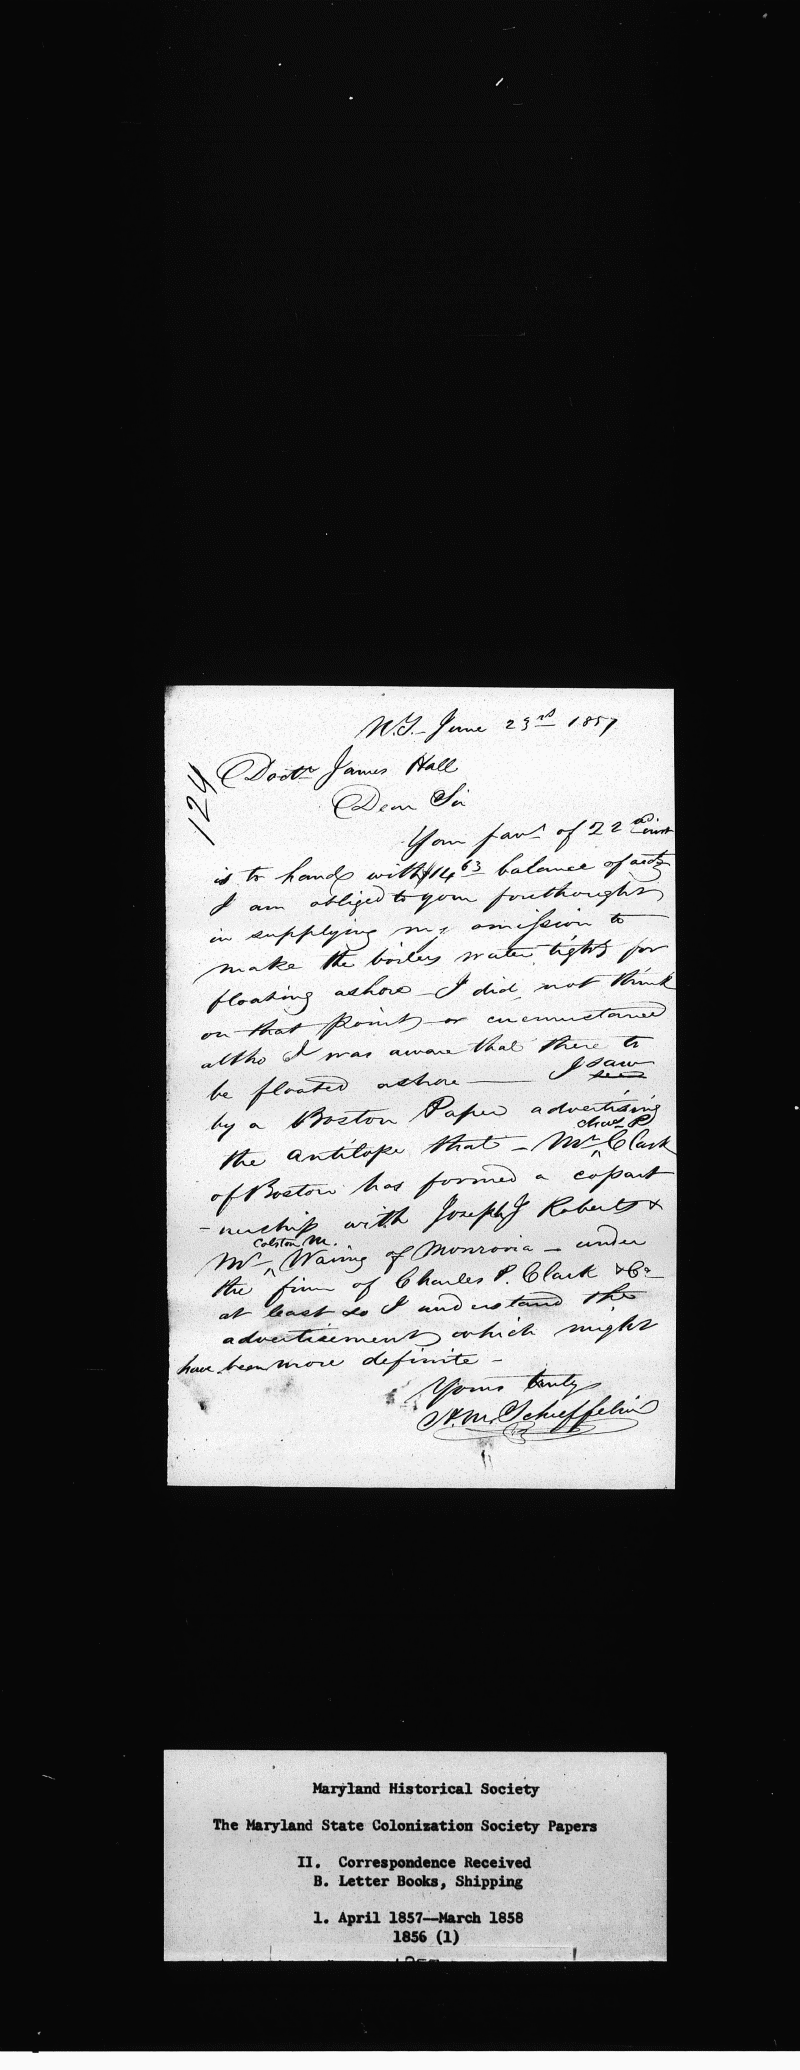 N.Y. June 23rd 1857
124
Doctr James Hall
Dear Sir
Your favr of 22nd inst
is to hand with $14 63 balance of accts
I am obliged to your forethought
in supplying my omission to
make the boilers water tight for
floating ashore - I did not think
on that point or circumstance
altho I was aware that there to
be floated ashore — I saw
seen
by a Boston Paper advertising
the Antilope that - Mr Chas P. Clark
of Boston has formed a copart
-nership with Joseph J Roberts &
Mr Colston M. Waring of Monrovia - under
the firm of Charles P. Clark & Co
at least so I understand the
advertisement which might
have been more definite -
Yours truly
H.M. Schieffelin
Maryland Historical Society
The Maryland State Colonization Society Papers
II. Correspondence Received
B. Letter Books, Shipping
1. April 1857—March 1858
1856 (1)